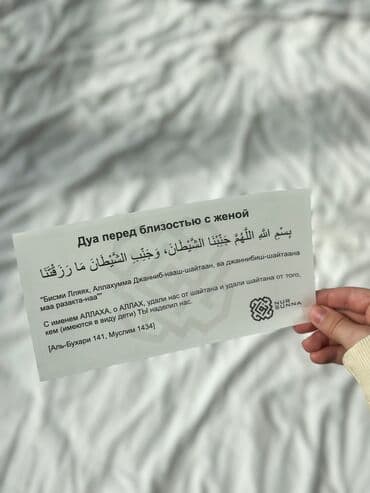 Дуа перед близостью с женой
بِسْمِ اللَّهِ اللَّهُمَّ جَنِّبْنَا الشَّيْطَانَ، وَجَنِّبِ الشَّيْطَانَ مَا رَزَقْتَنَا
"Бисми Лляях, Аллахумма Джанниб-нааш-шайтаан, ва джаннибиш-шайтаана
маа разакта-наа""
С именем АЛЛАХА, о АЛЛАХ, удали нас от шайтана и удали шайтана от того,
кем (имеются в виду дети) ТЫ наделил нас.
[Аль-Бухари 141, Муслим 1434]
NUR
SUNNA